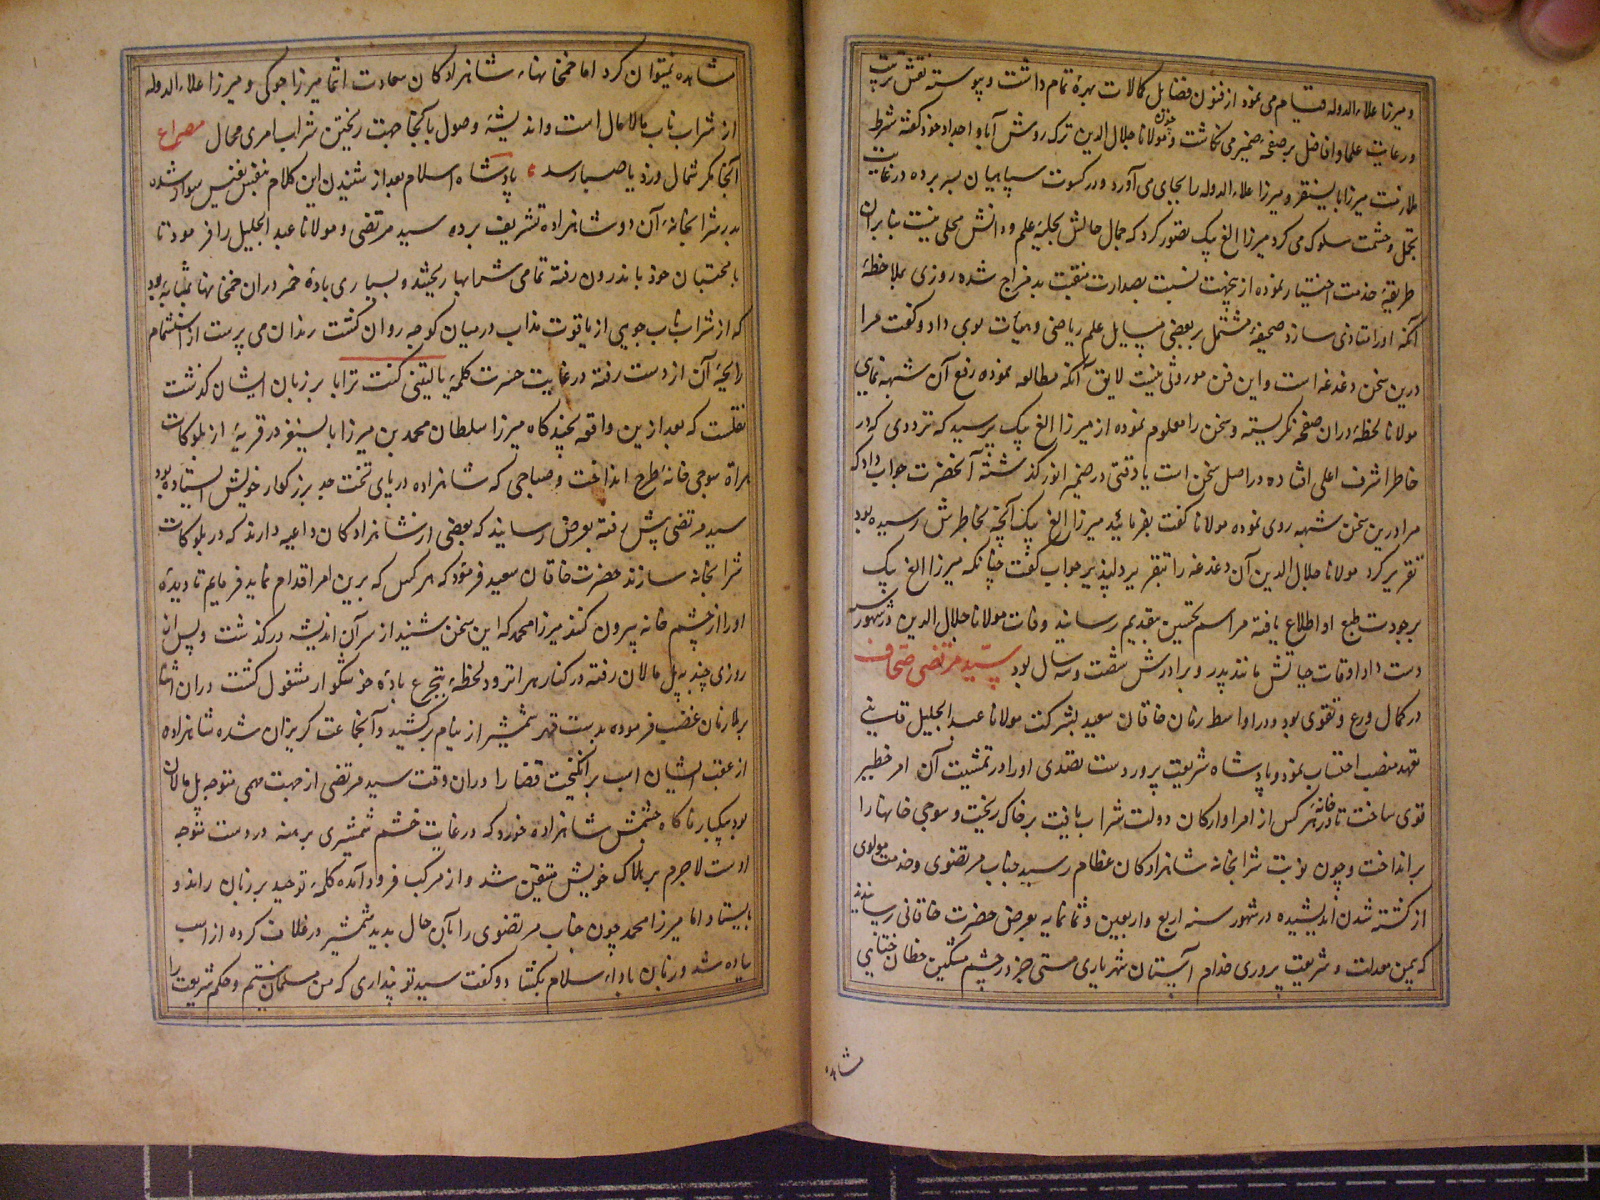 و میرزا علاء الدوله قیام می نمود از فنون فضایل و کمالات بهرهٔ تمام داشت و پیوسته نقش تربیت
و رعایت علما و افاضل بر صفحهٔ ضمیر می نکاشت و چون مولانا جلال الدین ترک روش آبا و اجداد خود کفته شرط
ملازمت میرزا بایسنقر و میرزا علاء الدوله را بجای می آورد و در کسوت سپاهیان بسر برده در غایت
تجمل و حشمت سلوک می کرد میرزا الغ بیک تصور کرد که جمال حالش بحلیهٔ علم و دانش محلی نیست بنابران
طریقهٔ خدمت اختیار نموده ازینجهت نسبت بصدارت منقبت بد مزاج شده روزی بملاحظهٔ
آنکه او را متاذی سازد صحیفهٔ مشتمل بر بعضی مسایل علم ریاضی و هیات بوی داد و کفت مرا
درین سخن دغدغه است و این فن موروثی تست لایق آنکه مطالعه نموده رفع آن شبهه نمایی
مولانا لحظهٔ دران صفحه نکریسته و سخن را معلوم نموده از میرزا الغ بیک پرسید که ترددی که در
خاطر اشرف اعلی افتاده در اصل سخن است یا دقتی در ضمیر انور کذشته آنحضرت جواب داد که
مرا درین سخن شبهه روی نموده مولانا کفت بفرمائید میرزا الغ بیک آنچه بخاطرش رسیده بود
تقریر کرد مولانا جلال الدین آن دغدغه را بتقریر دلپذیر جواب کفت چنانکه میرزا الغ بیک
بر جودت طبع او اطلاع یافته مراسم تحسین بتقدیم رسانید وفات مولانا جلال الدین در شهور سنه
دست داد اوقات حیاتش مانند پدر و برادرش شصت و سه سال بود سید مرتضی صحاف
در کمال ورع و تقوی بود و در اواسط زمان خاقان سعید بشرکت مولانا عبد الجلیل قاینی
تعهد منصب احتساب نمود و پادشاه شریعت پرور دست تصدی او را در تمشیت آن امر خطیر
قوی ساخت تا در خانهٔ هر کس از امرا و ارکان دولت شراب یافت بر خاک ریخت و بوجی خانها را
بر انداخت و چون نوبت شرابخانه شاهزادکان عظام رسید جناب مرتضوی و خدمت مولوی
از کشته شدن اندیشیده در شهور سنه اربع و اربعین و ثمانمایه بعرض حضرت خاقانی رسانیدند
که بیمن معدلت و شریعت پروری خدام آستان شهریاری مستی جز در چشم مشکین خطان ختایی
مشاهده
مشاهده نمیتوان کرد اما خمخانهاء شاهزادکان سعادت انتما میرزا جوکی و میرزا علاء الدوله
از شراب ناب مالامال است و اندیشهٔ وصول بآنجا جهت ریختن شراب امری محال مصراع
آنجا مکر شمال وزد یا صبا رسد پادشاه اسلام بعد از شنیدن این کلام بنفس نفیس سوار شده
بدر شرابخانهٔ آن دو شاهزاده تشریف برده سید مرتضی و مولانا عبد الجلیل را فرمود تا
با محتسبان خود باندرون رفته تمامی شرابها ریختند و بسیاری بادهٔ خمر دران خمخانها بمثابهٔ بود
که از شراب ناب جویی از یاقوت مذاب در میان کوچه روان کشت رندان می پرست از استشمام
رایحهٔ آن از دست رفته در غایت حسرت کلمهٔ یا لیتنی کنت ترابا بر زبان ایشان کذشت
نقلست که بعد ازین واقعه بچندکاه میرزا سلطان محمد بن میرزا بایسنغر در قریهٔ از بلوکات
هراة بوجی خانه طرح انداخت و صباحی که شاهزاده در پای تخت جد بزرکوار خویش ایستاده بود
سید مرتضی پیش رفته بعرض رسانید که بعضی از شاهزادکان داعیه دارند که در بلوکات
شرابخانه سازند حضرت خاقان سعید فرمود که هر کس که برین امر اقدام نماید فرمایم تا دیدهٔ
او را از چشم خانه بیرون کنند میرزا محمد که این سخن بشنید از سر آن اندیشه در کذشت و پس از
روزی چند به پل مالان رفته در کنار هراترود لحظهٔ بتجرع بادهٔ خوشکوار مشغول کشت دران اثنا
بر ملازمان غضب فرموده بدست قهر شمشیر از نیام برکشید و آنجماعت کریزان شده شاهزاده
از عقب ایشان اسب برانکیخت قضا را دران وقت سید مرتضی از جهت مهمی متوجه پل مالان
بود بیکبار ناکاه چشمش شاهزاده خورد که در غایت خشم شمشیری برهنه در دست متوجه
اوست لاجرم بر هلاک خویش متیقن شد و از مرکب فرود آمده کلمهٔ توحید بر زبان راند و
بایستاد اما میرزا محمد چون جناب مرتضوی را بآن حال بدید شمشیر در غلاف کرده از اسب
پیاده شد و زبان باداء سلام بکشاد و کفت سید تو پنداری که من مسلمان نیستم و حکم شریعت را